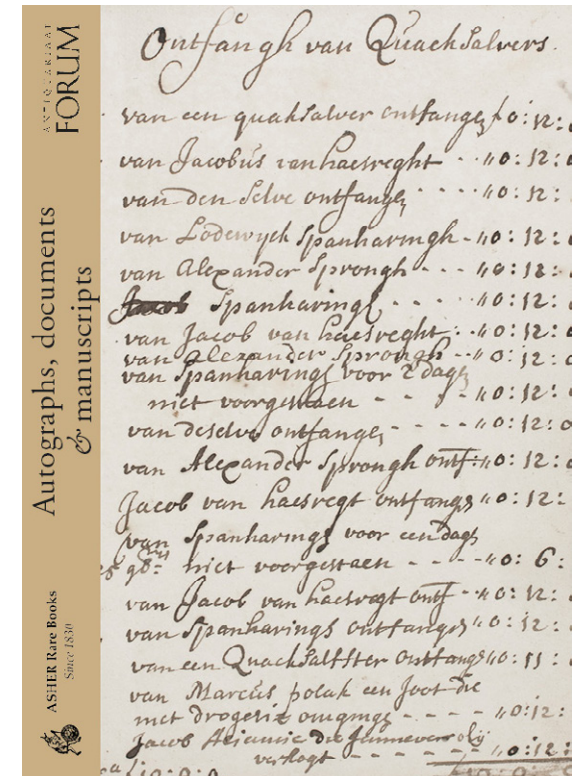 ANTIQUARIAAT
FORUM
Autographs, documents
& manuscripts
ASHER Rare Books
Since 1830
Ontfangh van Quacksalvers.
van een quaksalver ontfange f 0:12:
van Jacobus van haesreght - - " 0:12:
van den selve ontfange - - - - " 0:12:
van Lodewyck Spanharingh - " 0:12:
van Alexander Sprongh - - - " 0:12:
Spanharings - - - - - " 0:12:
van Jacob van haesreght - - " 0:12:
van Alexander Sprongh - - " 0:12:
van Spanharings voor 2 dage
niet voorgestaen - - - - " 0:12:
van deselve ontfange - - - - " 0:12:
van Alexander Sprongh ontf: " 0:12:
Jacob van haesregt ontfange " 0:12:
van Spanharings voor een dage
niet voorgestaen - - - - " 0: 6:
van Jacob van haesregt ontf - " 0:12:
van Spanharings ontfange " 0:12:
van een Quacksalfster ontfange " 0:11:
van Marcus polak een Joot die
met drogerie omginge - - - - - " 0:12:
Jacob die Jannever olij
verkogt - - - - - " 0:12: